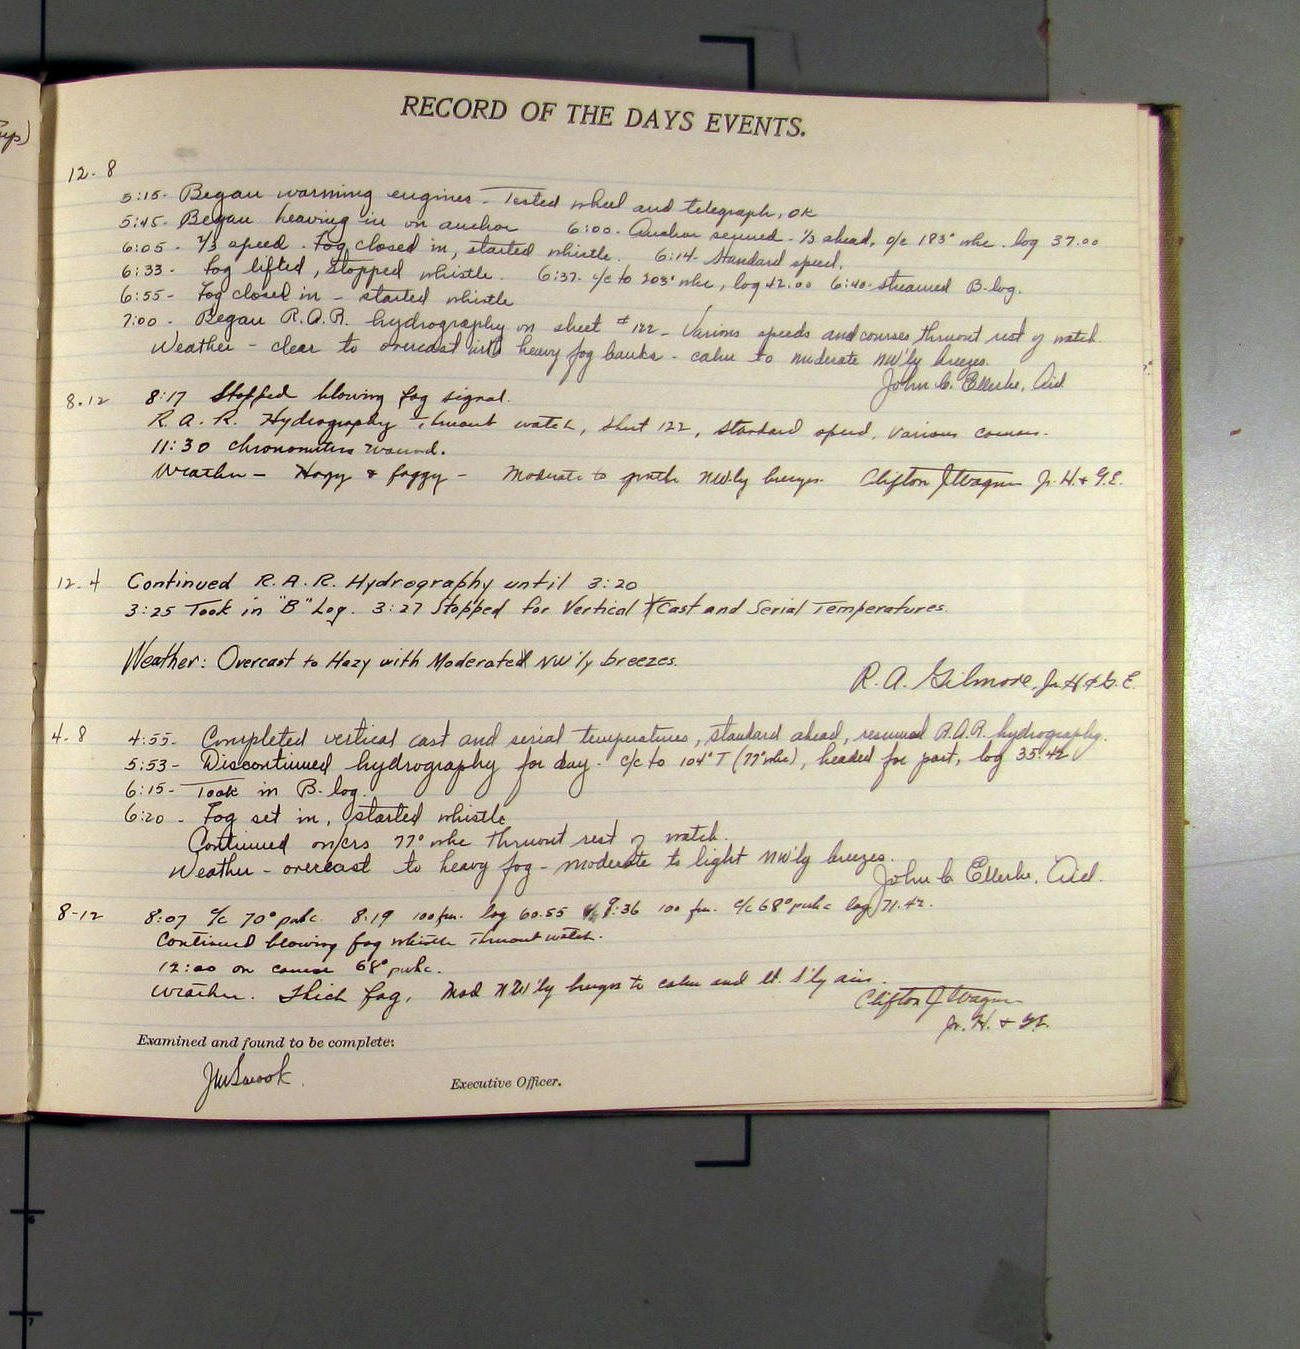 RECORD OF THE DAYS EVENTS.
12-8
5:15- Began warming engines - Tested wheel and telegraph, OK
5:45- Began heaving in on anchor 6:00- Anchor secured - 1/3 ahead, c/c 183° whc. log 37.00
6:05- 2/3 speed. Fog closed in, started whistle. 6:14- Standard speed.
6:33- Fog lifted, stopped whistle. 6:37- c/c to 203° whc, log 42.00 6:40- streamed B-log.
6:55- Fog closed in - started whistle
7:00- Began R.A.R. hydrography on sheet #122 - Various speeds and courses thruout rest of watch.
Weather - clear to overcast with heavy fog banks - calm to moderate NW'ly breezes.
John C. Ellerbe, Aid
8-12 8:17 Stopped blowing fog signal.
R.A.R. Hydrography thruout watch, sheet 122, standard speed, various courses.
11:30 chronometers wound.
Weather - Hazy & foggy - Moderate to gentle NW'ly breezes. Clifton J. Wagner Jr. H. & G.E.
12-4 Continued R.A.R. Hydrography until 3:20
3:25 Took in "B" Log. 3:27 Stopped for Vertical Cast and Serial Temperatures.
Weather: Overcast to Hazy with Moderate NW'ly breezes.
R.A. Gilmore, Jr. H & G. E.
4-8 4:55- Completed vertical cast and serial temperatures, standard ahead, resumed R.A.R. hydrography.
5:53- Discontinued hydrography for day - c/c to 104° T (77° whc), headed for port, log 35.42
6:15- Took in B-log.
6:20- Fog set in, started whistle
Continued on crs 77° whc thruout rest of watch.
Weather - overcast to heavy fog - moderate to light NW'ly breezes.
John C. Ellerbe, Aid.
8-12 8:07 c/c 70° pwhc. 8:19 100 fm. log 60.55 8:36 100 fm. c/c 68° pwhc log 71.42.
Continued blowing fog whistle thruout watch.
12:00 on course 68° pwhc.
Weather. Thick fog, Mod NW'ly breezes to calm and lt. S'ly airs.
Clifton J. Wagner
Jr. H. & G.E.
Examined and found to be complete:
Executive Officer.